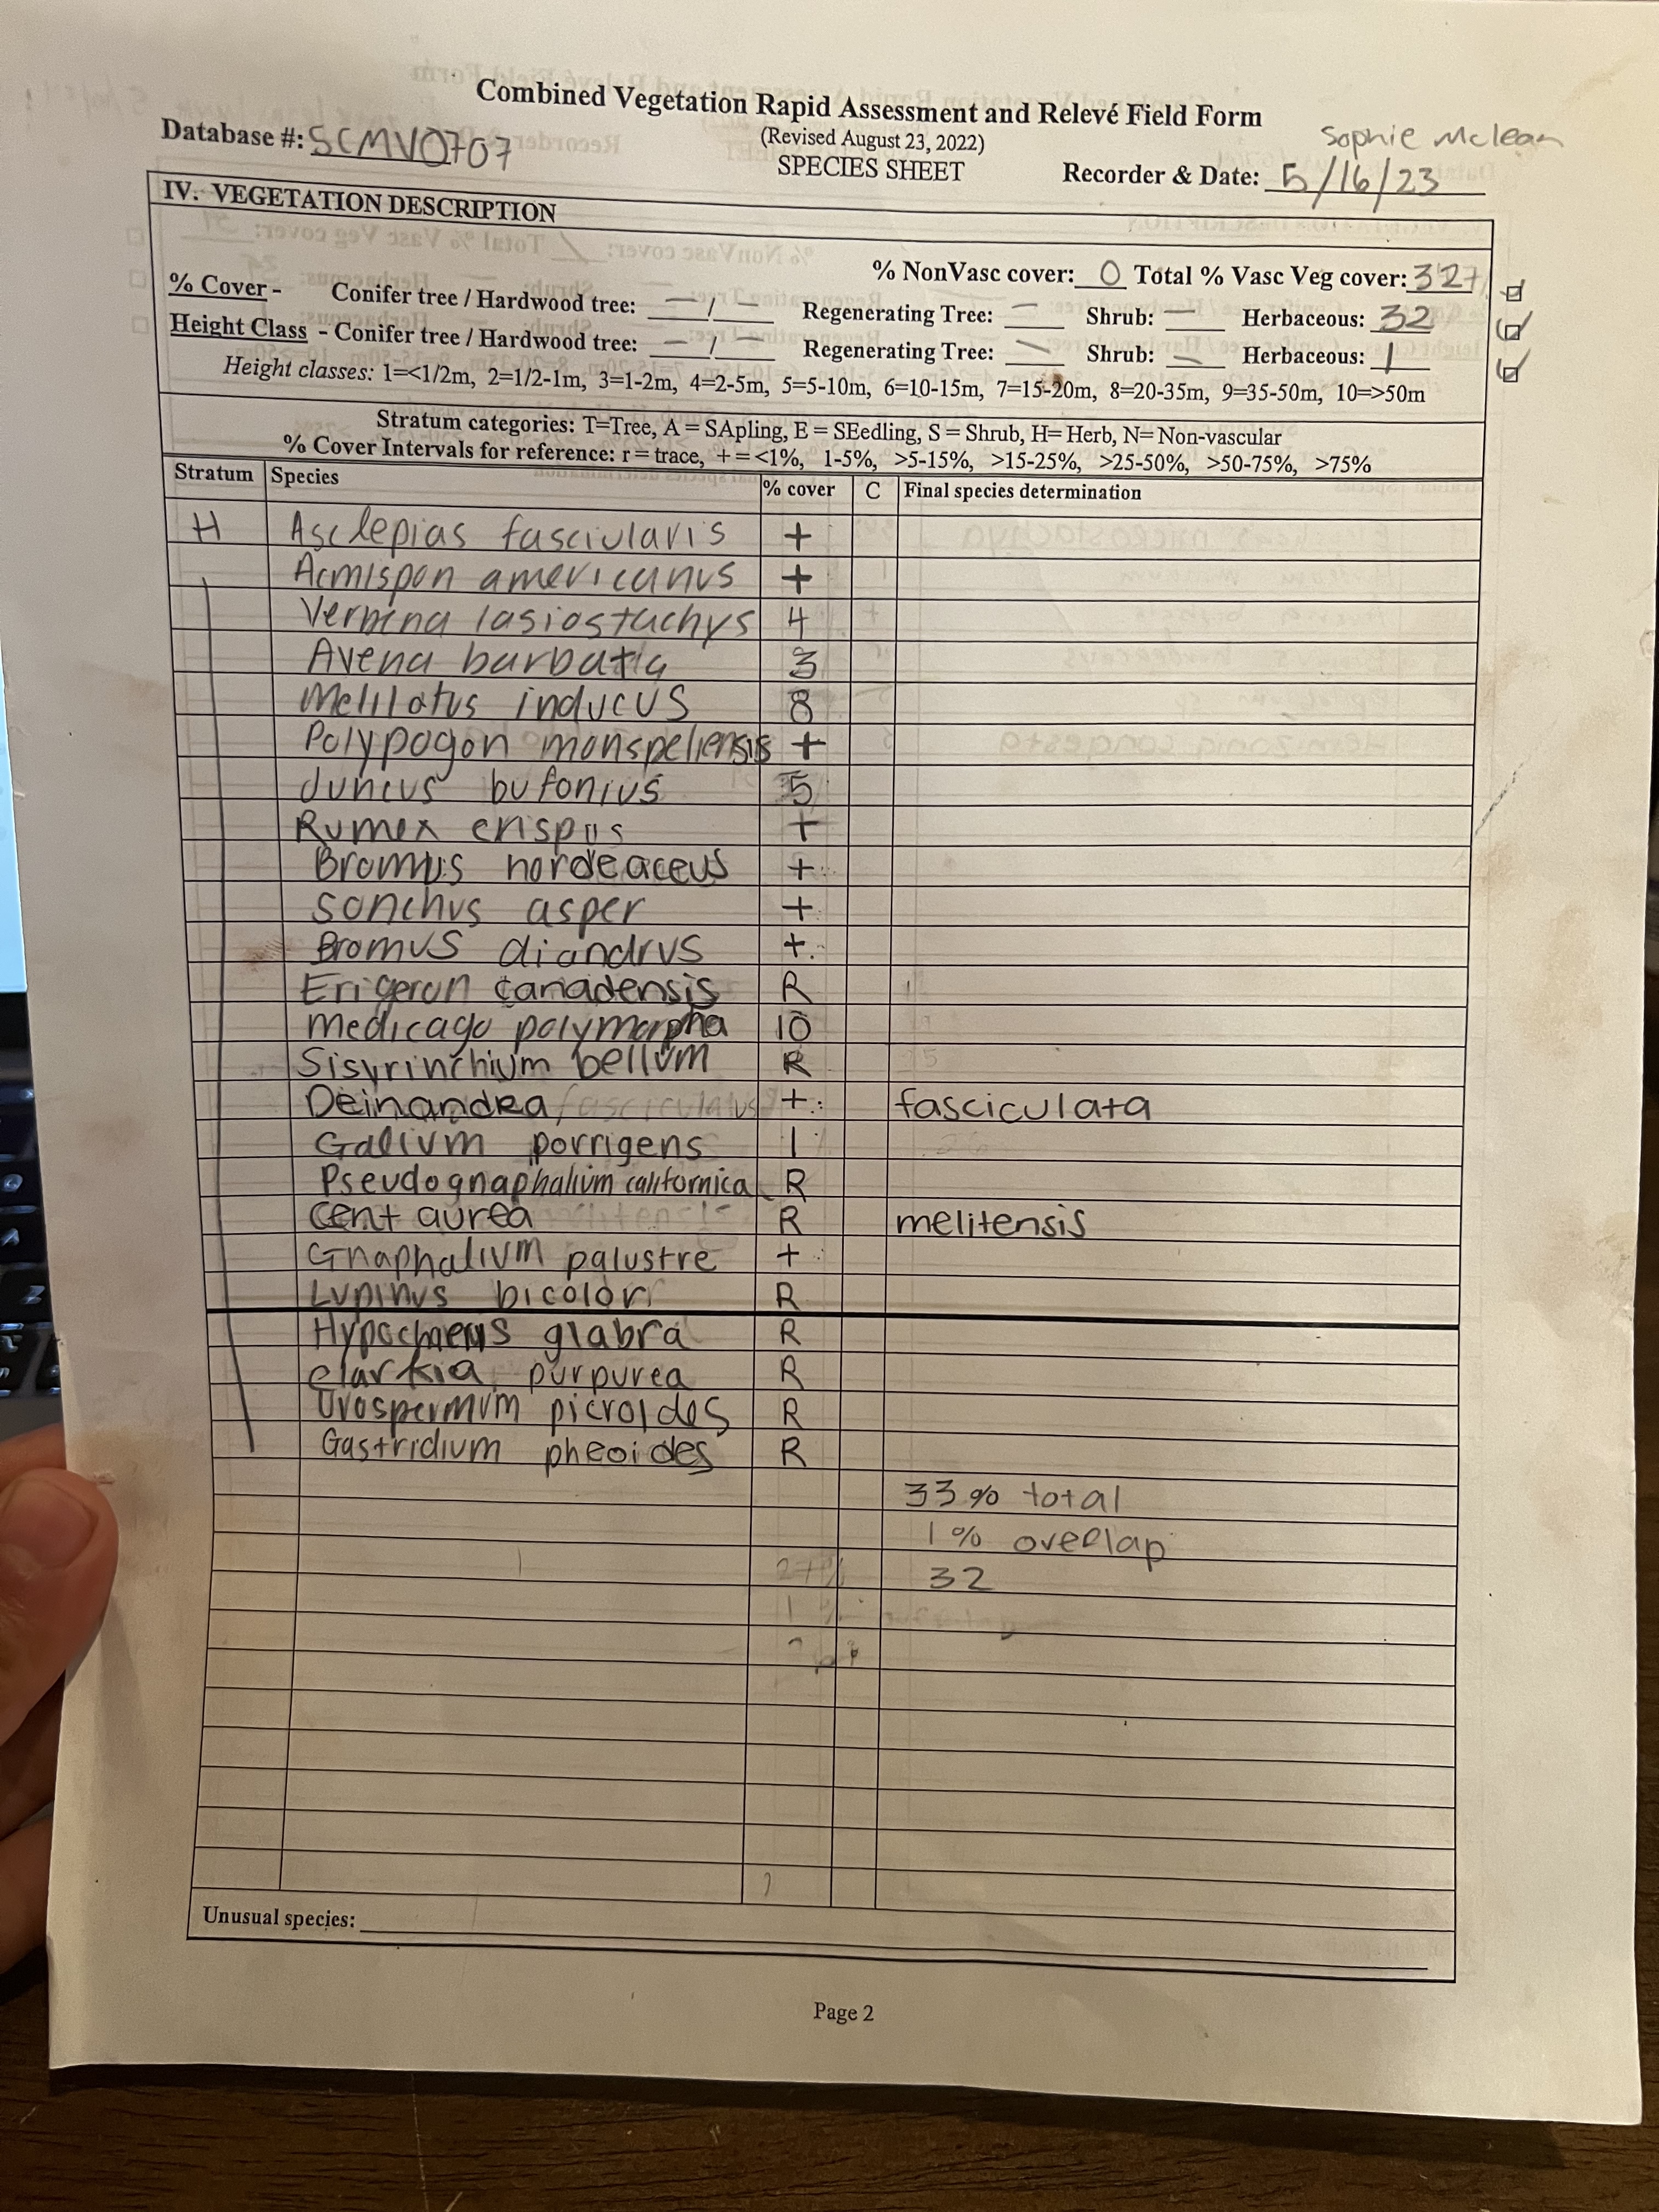 Combined Vegetation Rapid Assessment and Relevé Field Form
(Revised August 23, 2022)
SPECIES SHEET
Database #: SCMV0707
Sophie Mclean
Recorder & Date: 5/16/23
IV. VEGETATION DESCRIPTION
% NonVasc cover: 0 Total % Vasc Veg cover: 32
% Cover - Conifer tree / Hardwood tree: — / — Regenerating Tree: — Shrub: — Herbaceous: 32
Height Class - Conifer tree / Hardwood tree: — / — Regenerating Tree: — Shrub: — Herbaceous: 1
Height classes: 1=<1/2m, 2=1/2-1m, 3=1-2m, 4=2-5m, 5=5-10m, 6=10-15m, 7=15-20m, 8=20-35m, 9=35-50m, 10=>50m
Stratum categories: T=Tree, A = SApling, E = SEedling, S = Shrub, H= Herb, N= Non-vascular
% Cover Intervals for reference: r = trace, + = <1%, 1-5%, >5-15%, >15-25%, >25-50%, >50-75%, >75%
Stratum Species % cover C Final species determination
H Asclepias fasciularis +
Acmispon americanus +
Verbina lasiostachys 4
Avena barbatia 3
Melilatus inducus 8
Polypogon monspeliensis +
Juncus bufonius 5
Rumex crispus +
Bromus hordeaceus +
Sonchus asper +
Bromus diandrus +
Erigeron canadensis R
Medicago polymorpha 10
Sisyrinchium bellum R
Deinandra fasciculatus + fasciculata
Galium porrigens 1
Pseudognaphalium californica R
Centaurea R melitensis
Gnaphalium palustre +
Lupinus bicolor R
Hypochaeris glabra R
clarkia purpurea R
Urospermum picroides R
Gastridium pheoides R
33% total
1% overlap
27%
32
1%
Unusual species:
Page 2